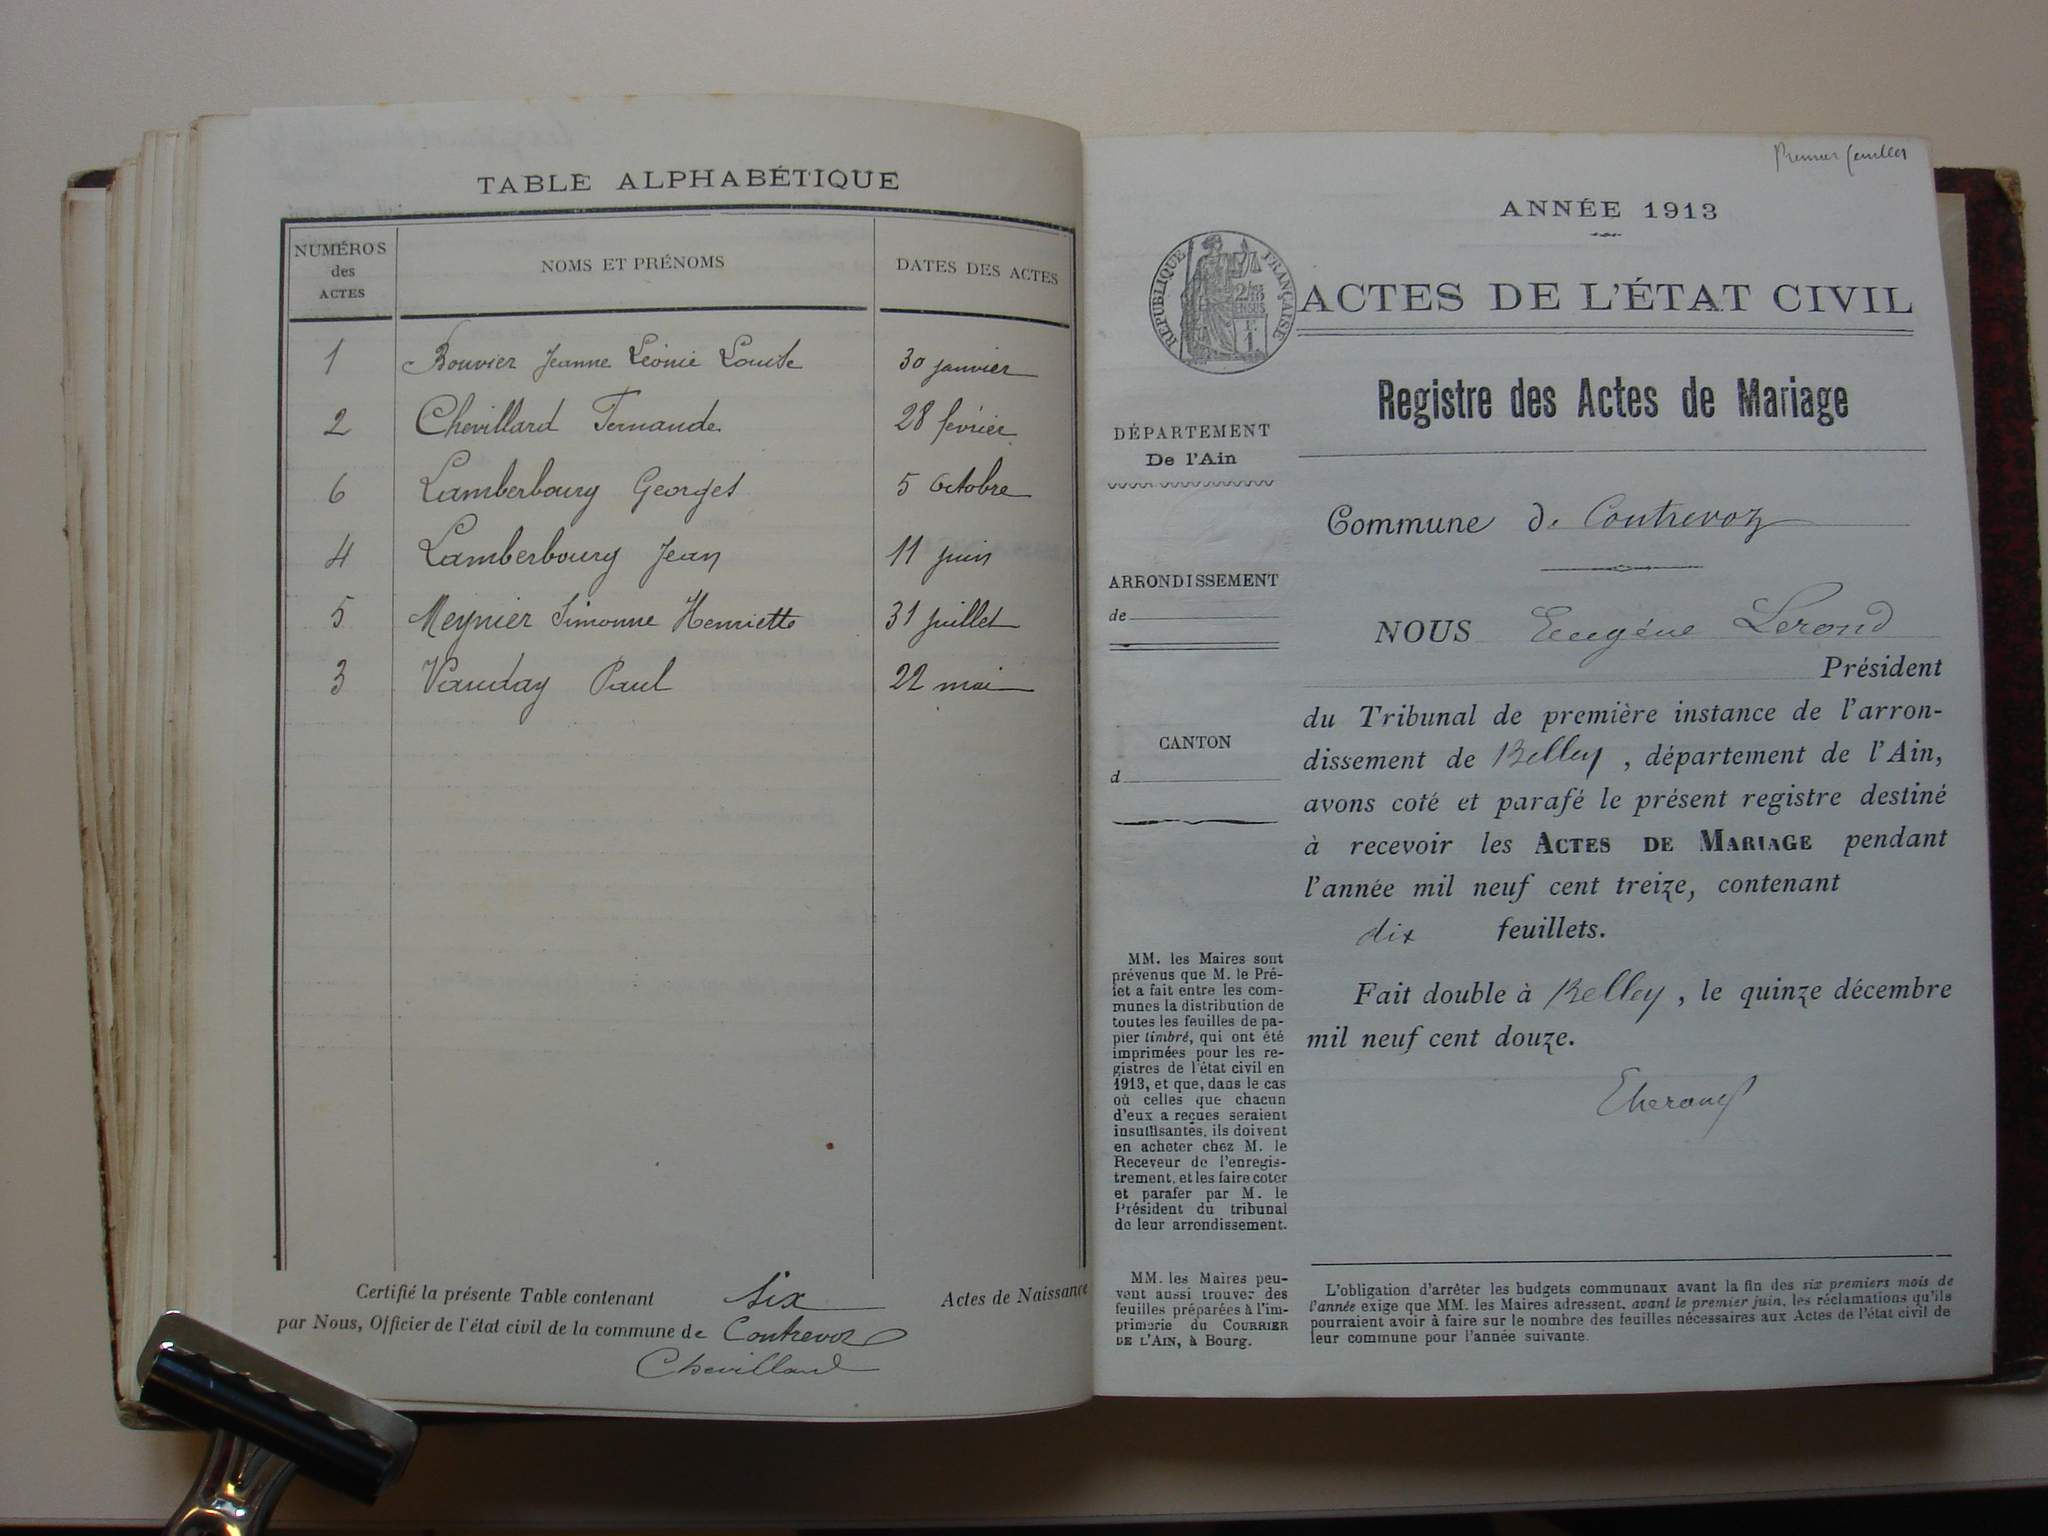 TABLE ALPHABÉTIQUE
NUMÉROS des ACTES NOMS ET PRÉNOMS DATES DES ACTES
1 Bouvier Jeanne Léonie Louise 30 janvier
2 Chevillard Fernande 28 février
6 Lamberbourg Georges 5 Octobre
4 Lamberbourg Jean 11 juin
5 Meynier Simonne Henriette 31 juillet
3 Vauday Paul 22 mai
Certifié la présente Table contenant six Actes de Naissance
par Nous, Officier de l'état civil de la commune de Contrevoz
Chevillard
Premier feuillet
ANNÉE 1913
RÉPUBLIQUE FRANÇAISE
ACTES DE L'ÉTAT CIVIL
Registre des Actes de Mariage
DÉPARTEMENT
De l'Ain
Commune de Contrevoz
ARRONDISSEMENT
de
NOUS Eugène Lerond
Président
du Tribunal de première instance de l'arron-
dissement de Belley, département de l'Ain,
CANTON
d
avons coté et parafé le présent registre destiné
à recevoir les ACTES DE MARIAGE pendant
l'année mil neuf cent treize, contenant
dix feuillets.
Fait double à Belley, le quinze décembre
mil neuf cent douze.
MM. les Maires sont
prévenus que M. le Pré-
fet a fait entre les com-
munes la distribution de
toutes les feuilles de pa-
pier timbré, qui ont été
imprimées pour les re-
gistres de l'état civil en
1913, et que, dans le cas
où celles que chacun
d'eux a reçues seraient
insuffisantes, ils doivent
en acheter chez M. le
Receveur de l'enregis-
trement, et les faire coter
et parafer par M. le
Président du tribunal
de leur arrondissement.
MM. les Maires peu-
vent aussi trouver des
feuilles préparées à l'im-
primerie du COURRIER
DE L'AIN, à Bourg.
L'obligation d'arrêter les budgets communaux avant la fin des six premiers mois de
l'année exige que MM. les Maires adressent, avant le premier juin, les réclamations qu'ils
pourraient avoir à faire sur le nombre des feuilles nécessaires aux Actes de l'état civil de
leur commune pour l'année suivante.